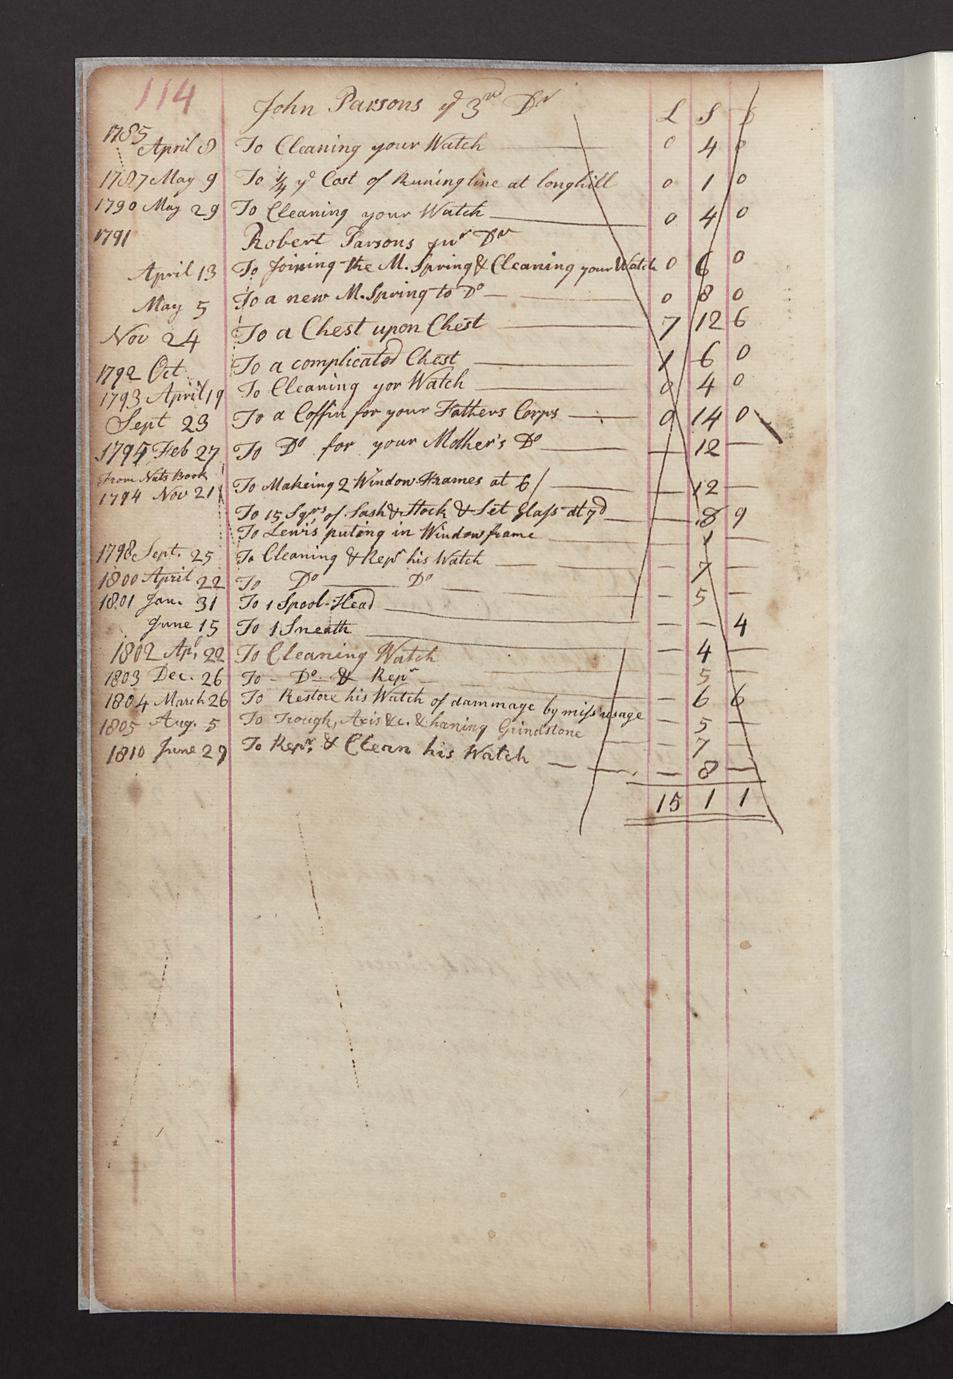 114
John Parsons yᵉ 3ʳᵈ Dʳ L S D
1785
April 8 To Cleaning your Watch 0 4 0
1787 May 9 To ¼ yᵉ Cost of Runing line at longhill 0 1 0
1790 May 29 To Cleaning your Watch 0 4 0
1791 Robert Parsons juʳ Dʳ
April 13 To Joining the M. Spring & Cleaning your Watch 0 6 0
May 5 To a new M. Spring to Dº 0 8 0
Nov 24 To a Chest upon Chest 7 12 6
1792 Oct To a complicated Chest 1 6 0
1793 April 19 To Cleaning yor Watch 0 4 0
Sept 23 To a Coffin for your Fathers Corps 0 14 0
1795 Feb 27 To Dº for your Mother's Dº — 12 —
From Nats Book
1794 Nov 21 To Makeing 2 Window Frames at 6/ — 12 —
To 15 Sqʳˢ of Sash & Stock & Set Glass at 7ᵈ — 8 9
To Lewis puting in Window frame 1 —
1798 Sept. 25 To Cleaning & Repʳ his Watch — 7 —
1800 April 22 To Dº Dº — 5 —
1801 Jan. 31 To 1 Spool-Head — — 4
June 15 To 1 Sneath — 4 —
1802 Apˡ 22 To Cleaning Watch — 5 —
1803 Dec. 26 To - Dº & Repʳ — 6 6
1804 March 26 To Restore his Watch of dammage by miss usage — 5 —
1805 Aug. 5 To Trough, Axis &c. & haning Grindstone — 7 —
1810 June 29 To Repʳ & Clean his Watch — 8 —
15 1 1